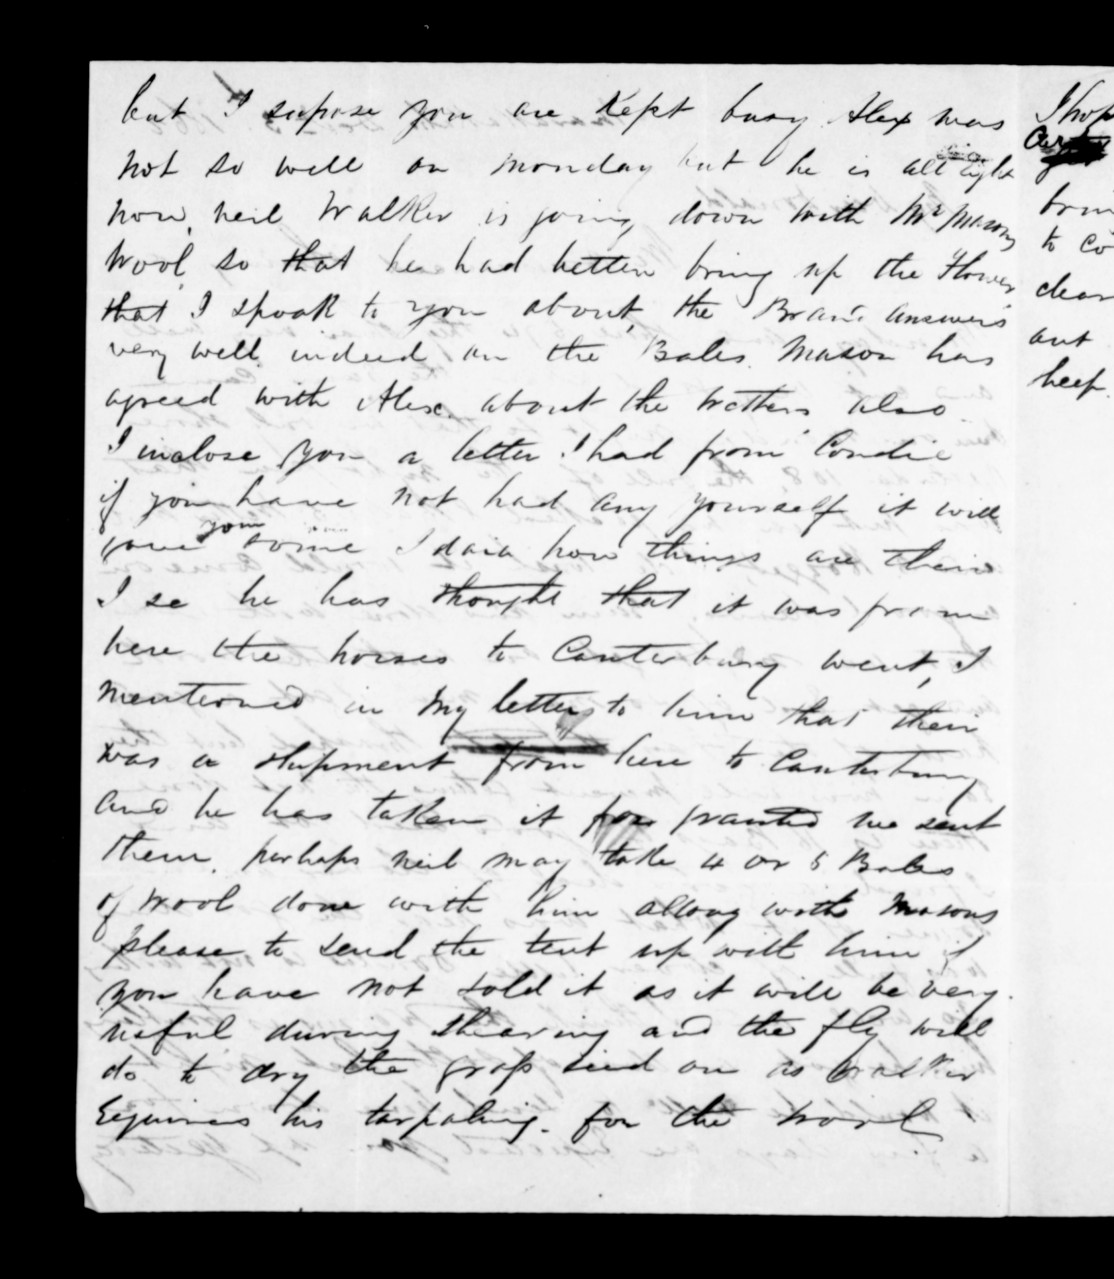 but I supose you are Kept busy Alex was
not so well on monday but he is all right
now, neil Walker is going down with Mr Masons
Wool, so that he had better bring up the Flower
that I spoak to you about, the Brand answers
very well indeed on the Bales. Mason has
agreed with Alex about the Wethers also
I inclose you a letter I had from Condie
if you have not had any yourself it will
give you some Idaia how things are their
I se he has thought that it was from
here the horses to Canterbury went, I
mentioned in my letter to him that their
was a shipment from here to Canterbury
and he has taken it for granted we sent
them. perhaps neil may take 4 or 5 Bales
of wool done with him allong with Masons
please to send the tent up with him if
you have not sold it as it will be very
usful during Shearing and the fly will
do to dry the grass seed on as Walker
Equires his tarpaling. for the wool
I hop
brin
to co
clear
out
keep